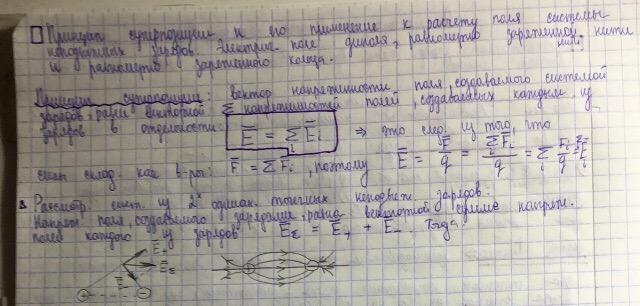 Принцип суперпозиции и его применение к расчету поля системы
неподвижных зарядов. Электрич. поле диполя, равномерно заряженной нити
и равномерно заряженного кольца.
Принцип суперпозиции: вектор напряженности поля, создаваемого системой
зарядов, равен векторной Σ напряженностей полей, создаваемых каждым из
зарядов в отдельности: E̅ = Σ E̅ᵢ ⇒ это след. из того, что
силы склад. как в-ры: F̅ = Σ F̅ᵢ, поэтому E̅ = F̅/q = Σ F̅ᵢ/q = Σ F̅ᵢ/q = Σ E̅ᵢ
Рассмотр. сист. из 2ˣ одинак. точечных неподвиж. зарядов.
Напряж. поля, создаваемого зарядами, равна векторной сумме напряж.
полей каждого из зарядов E̅Σ = E̅₊ + E̅₋. Тогда
E̅₊
E̅Σ
E̅₋
+ −
+ −